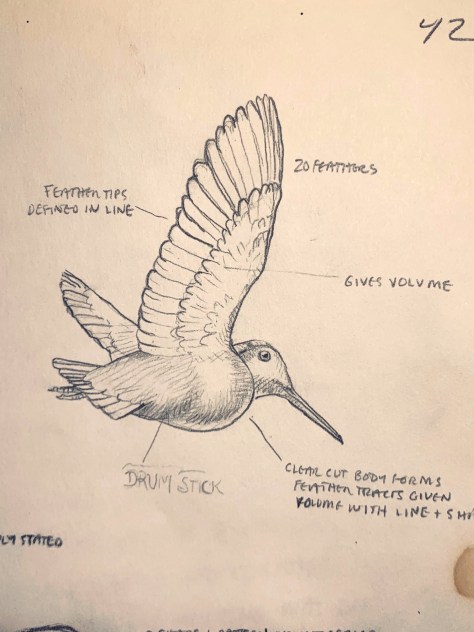 42
20 FEATHERS
FEATHER TIPS
DEFINED IN LINE
GIVES VOLUME
CLEAR CUT BODY FORMS
FEATHER TRACTS GIVEN
VOLUME WITH LINE + SH
DRUM STICK
STATED